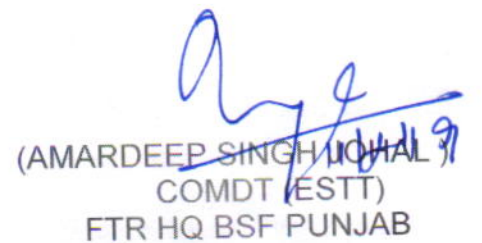 (AMARDEEP SINGH JOHAL )
COMDT (ESTT)
FTR HQ BSF PUNJAB